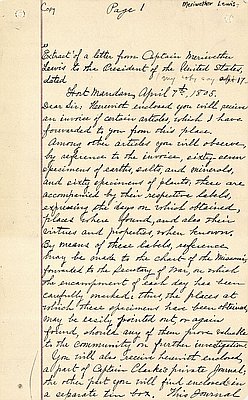 Copy
Page 1
Meriwether Lewis.
Extract of a letter from Captain Meriwether
Lewis to the President of the United States,
dated
my copy say Apl 17.
Fort Mandan, April 7th, 1805.
Dear Sir: Herewith enclosed you will receive
an invoice of certain articles, which I have
forwarded to you from this place.
Among other articles you will observe,
by reference to the invoice, sixty-seven
specimens of earths, salts, and minerals,
and sixty specimens of plants; these are
accompanied by their respective labels,
expressing the day on which obtained,
places where found, and also their
virtues and properties, when known.
By means of these labels, reference
may be made to the chart of the Missouri,
forwarded to the Secretary of War, on which
the encampment of each day has been
carefully marked: thus, the places at
which these specimens have been obtained,
may be easily pointed out or again
found, should any of them prove valuable
to the community on further investigation.
You will also receive herewith enclosed,
a part of Captain Clarke's private journal;
the other part you will find enclosed in
a separate tin box. This Journal